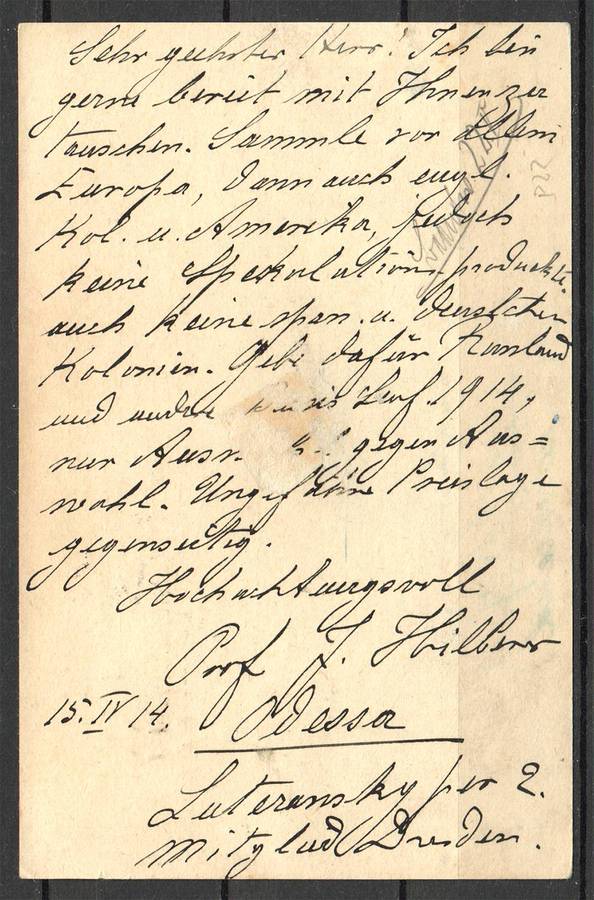 Sehr geehrter Herr! Ich bin
gerne bereit mit Ihnen zu
tauschen. Sammle vor allem
Europa, dann auch engl.
Kol. u. Amerika, jedoch
keine Spekulationsprodukte,
auch keine span. u. deutschen
Kolonien. Gebe dafür Russland
und andere 1914,
nur gegen Aus=
wahl. Ungefähre Preislage
gegenseitig.
Hochachtungsvoll
Prof J. Hilberer
15. IV 14. Odessa
Luteransky per 2.
Mitglied Dresden.
P22